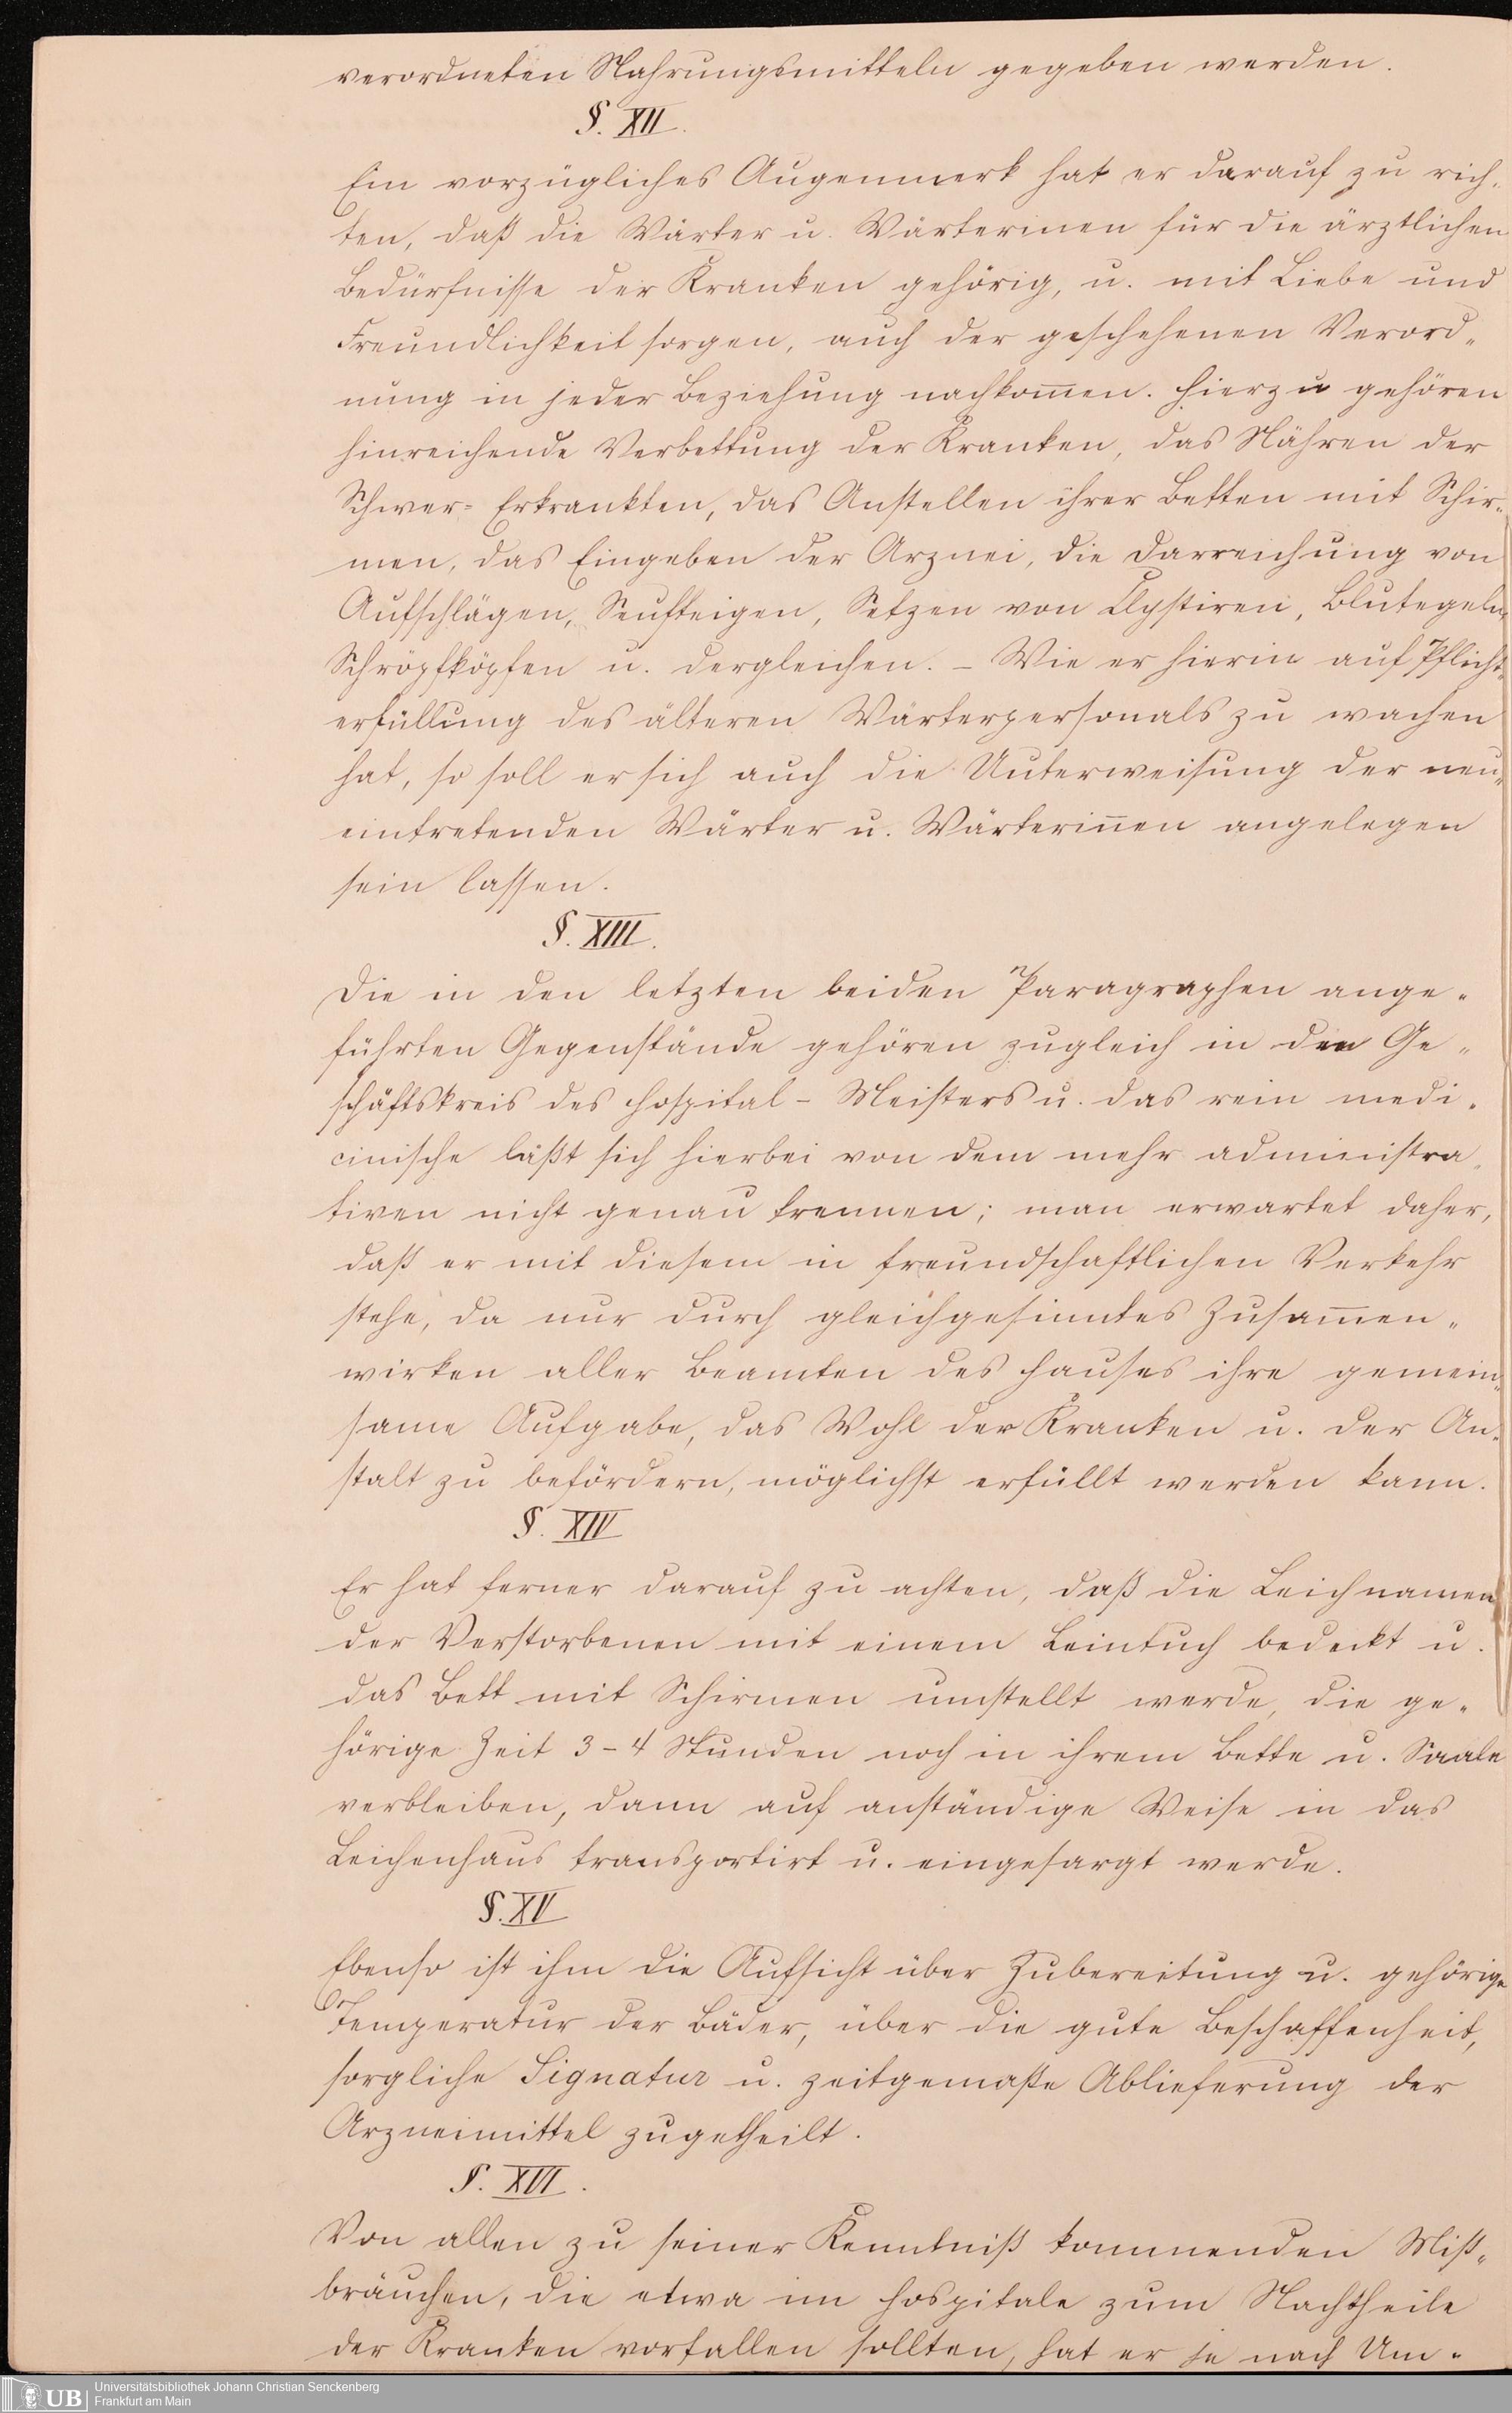 verordneten Nahrungsmitteln gegeben werden.
§. XII.
Ein vorzügliches Augenmerk hat er darauf zu rich-
ten, daß die Wärter u. Wärterinen für die ärztlichen
Bedürfnisse der Kranken gehörig, u. mit Liebe und
Freundlichkeit sorgen, auch der geschehenen Verord-
nung in jeder Beziehung nachkom̅en. Hierzu gehören
hinreichende Verbettung der Kranken, das Nähren der
Schwer= Erkrankten, das Anstellen ihrer Betten mit Schir-
men, das Eingeben der Arznei, die Darreichung von
Aufschlägen, Senfteigen, Setzen von Clystiren, Blutegeln,
Schröpfköpfen u. dergleichen. – Wie er hierin auf Pflicht-
erfüllung des älteren Wärterpersonals zu wachen
hat, so soll er sich auch die Unterweisung der neu-
eintretenden Wärter u. Wärterin̅en angelegen
sein lassen.
§. XIII.
Die in den letzten beiden Paragraphen ange-
führten Gegenstände gehören zugleich in den Ge-
schäftskreis des Hospital - Meisters u. das rein medi-
cinische läßt sich hierbei von dem mehr administra-
tiven nicht genau trennen; man erwartet daher,
daß er mit diesem in freundschaftlichen Verkehr
stehe, da nur durch gleichgesinntes Zusam̅en-
wirken aller Beamten des Hauses ihre gemein-
same Aufgabe, das Wohl der Kranken u. der An-
stalt zu befördern, möglichst erfüllt werden kann.
§. XIV
Er hat ferner darauf zu achten, daß die Leichnamen
der Verstorbenen mit einem Leintuch bedeckt u.
das Bett mit Schirmen umstellt werde, die ge-
hörige Zeit 3-4 Stunden noch in ihrem Bette u. Saale
verbleiben, dann auf anständige Weise in das
Leichenhaus transportirt u. eingesargt werde.
§. XV
Ebenso ist ihm die Aufsicht über Zubereitung u. gehörige
Temperatur der Bäder, über die gute Beschaffenheit,
sorgliche Signatur u. zeitgemaße Ablieferung der
Arzneimittel zugetheilt.
§. XVI.
Von allen zu seiner Kenntniß kommenden Miß-
bräuchen, die etwa im Hospitale zum Nachtheile
der Kranken vorfallen sollten, hat er je nach Um-
UB
Universitätsbibliothek Johann Christian Senckenberg
Frankfurt am Main